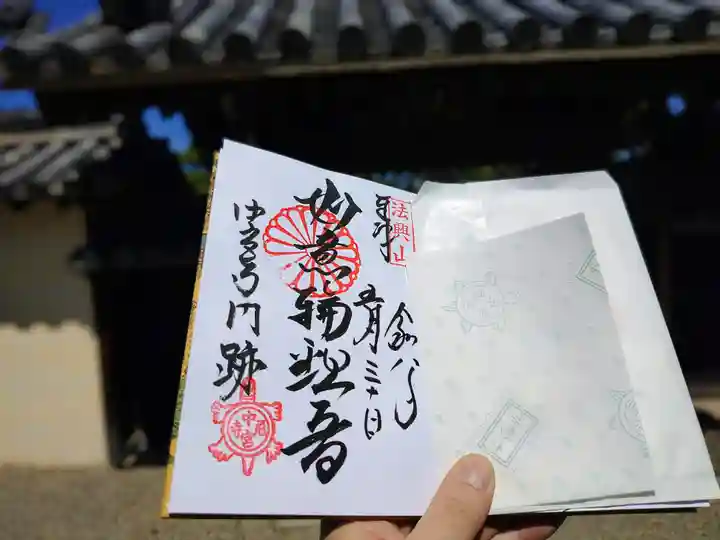 奉拝
法興山
五月三十日
如意輪観音
中宮寺門跡
中宮尼寺